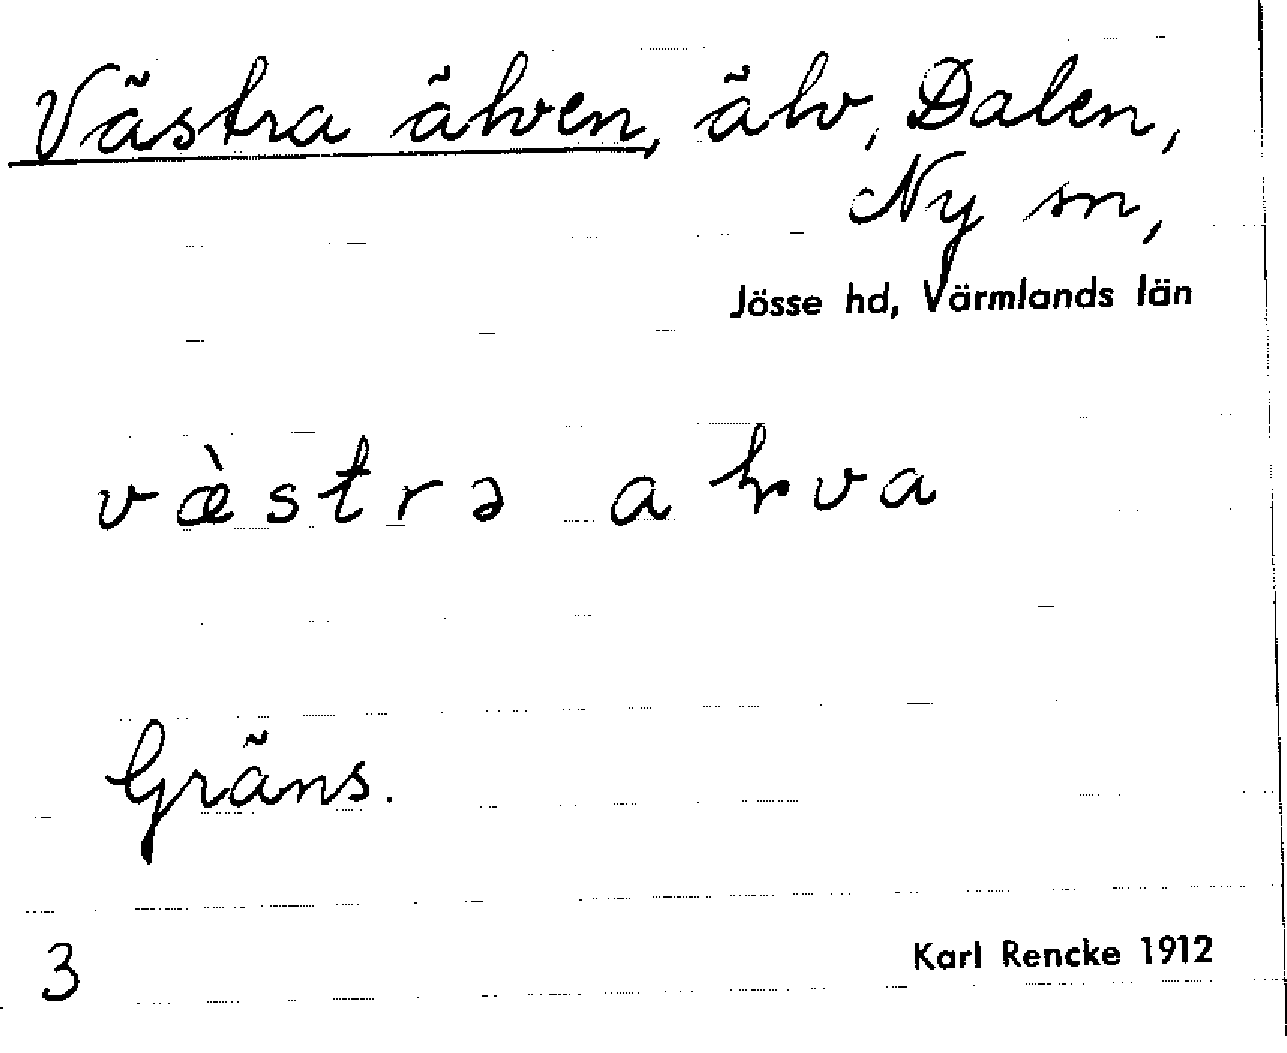 Västra älven, älv, Dalen,
Ny sn,
Jösse hd, Värmlands län
væ̀strə aɽva
Gräns.
3
Karl Rencke 1912